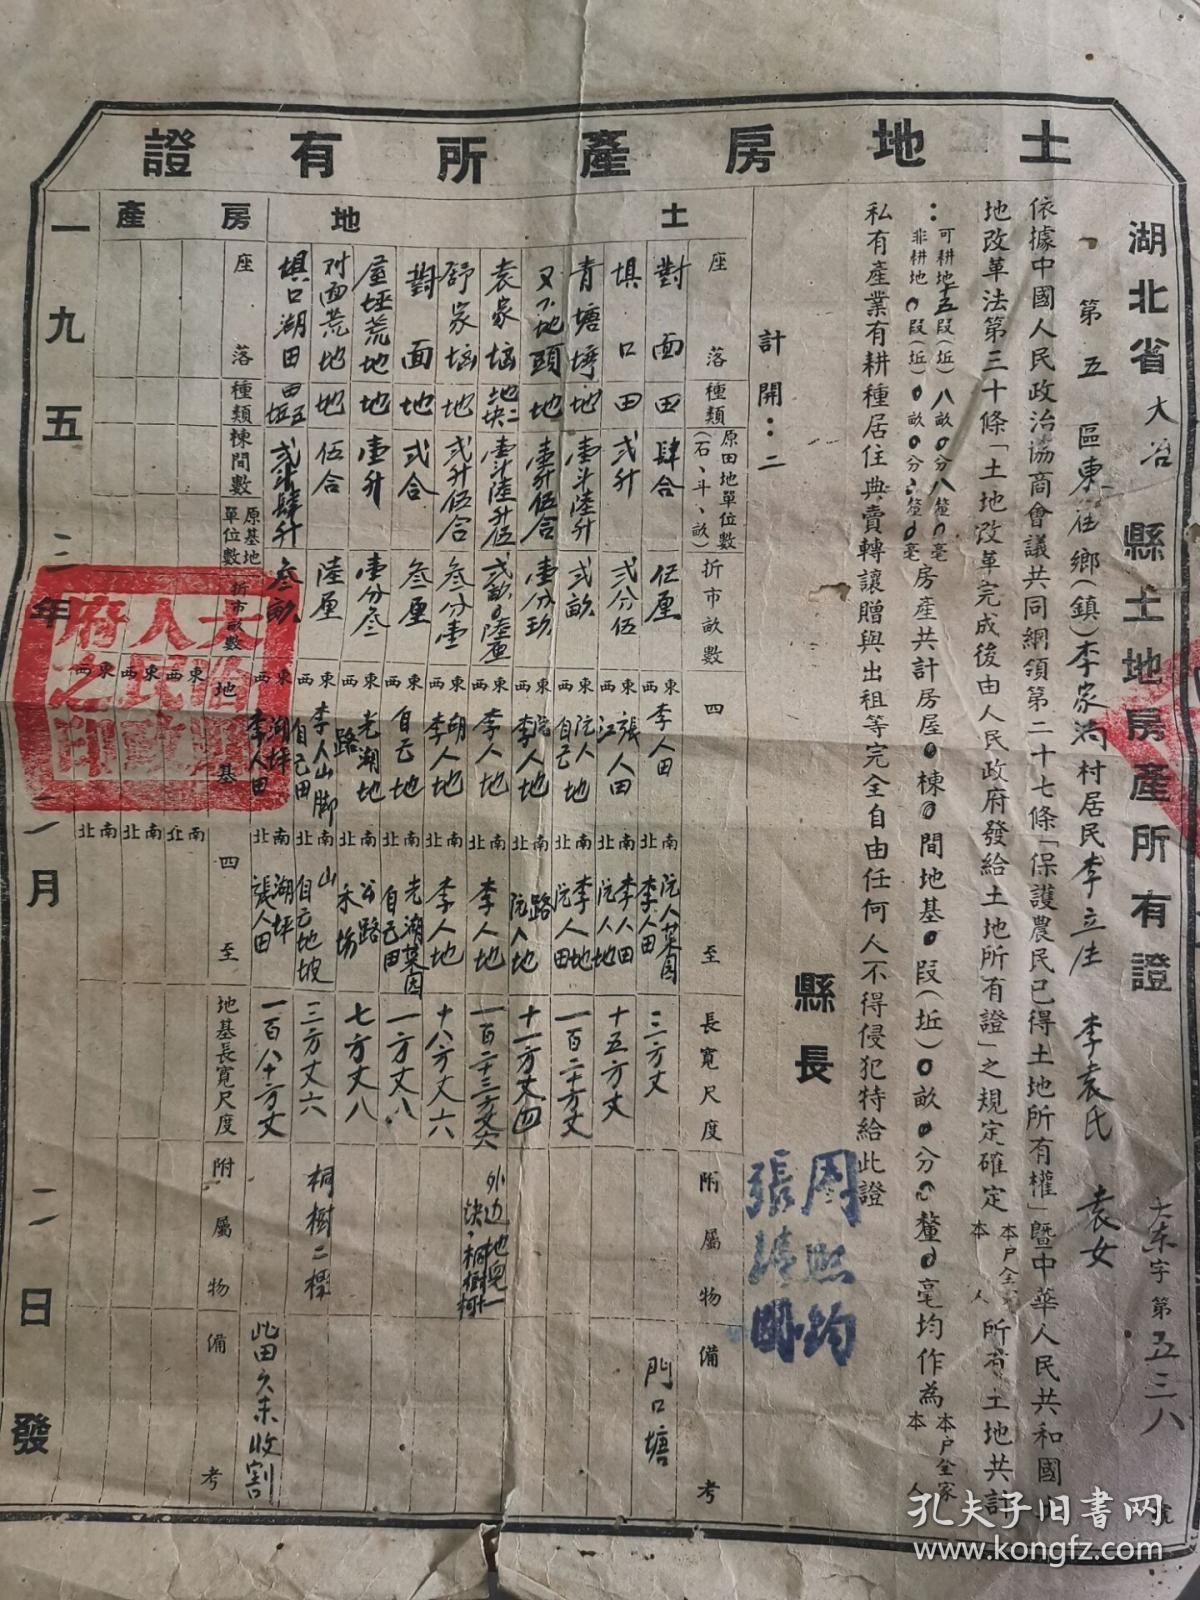 土地房產所有證
湖北省大冶縣土地房產所有證
大东字第五三八號
第五區東 鄉(鎮)李家 村居民李立 李袁氏 袁女
依據中國人民政治協商會議共同綱領第二十七條「保護農民已得土地所有權」暨中華人民共和國土
地改革法第三十條「土地改革完成後由人民政府發給土地所有證」之規定確定本户全家本人所有土地共計
:可耕地十五段(坵)八畝0分八釐0毫
非耕地0段(坵)0畝0分0釐0毫
房產共計房屋0棟0間地基0段(坵)0畝0分0釐0毫均作為本户全家本人
私有產業有耕種居住典賣轉讓贈與出租等完全自由任何人不得侵犯特給此證
計開:二
縣長
周熙鈞
張
土地
座落 種類 原田地單位數(石、斗、畝) 折市畝數 四至 長寬尺度 附屬物 備考
對面 田 肆合 伍厘 東 李人田 西 南 阮人菜园 北 李人田 三方丈 門口塘
垻口 田 弍升 弍分伍 東 張人田 西 江 南 李人田 北 阮人地 十五方丈
青塘塝 地 壹斗陸升 弍畝 東 阮人地 西 自己 南 李人地 北 阮人田 一百二十方丈
又下地頭 地 壹升伍合 壹分玖 東 阮人地 西 李人地 南 路 北 阮人地 十一方丈四
袁家垴 地二块 壹斗陸升伍 弍畝0陸厘 東 西 李人地 南 北 李人地 一百二十三方丈六 外边地 一块,桐樹
舒家垴 地 弍升伍合 叁分壹 東 胡人地 西 李人地 南 北 李人地 十八方丈六
對面 地 弍合 叁厘 東 西 自己地 南 光湖菜园 北 自己田 一方丈八
屋坵荒地 地 壹升 壹分叁 東 光湖地 西 路 南 公路 北 禾塲 七方丈八
对面荒地 地 伍合 陸厘 東 李人山脚 西 自己田 南 山 北 自己地坡 三方丈六 桐樹二棵
垻口湖田 田五坵 弍斗肆升 叁畝 東 湖坪 西 李人田 南 湖坪 北 張人田 一百八十方丈 此田久未收割
房產
座落 種類 棟間數 原基地單位數 折市畝數 地基四至 地基長寬尺度 附屬物 備考
東西 南北
東西 南北
東西 南北
一九五二年二月二日發
大冶縣人民政府之印
孔夫子旧书网
www.kongfz.com